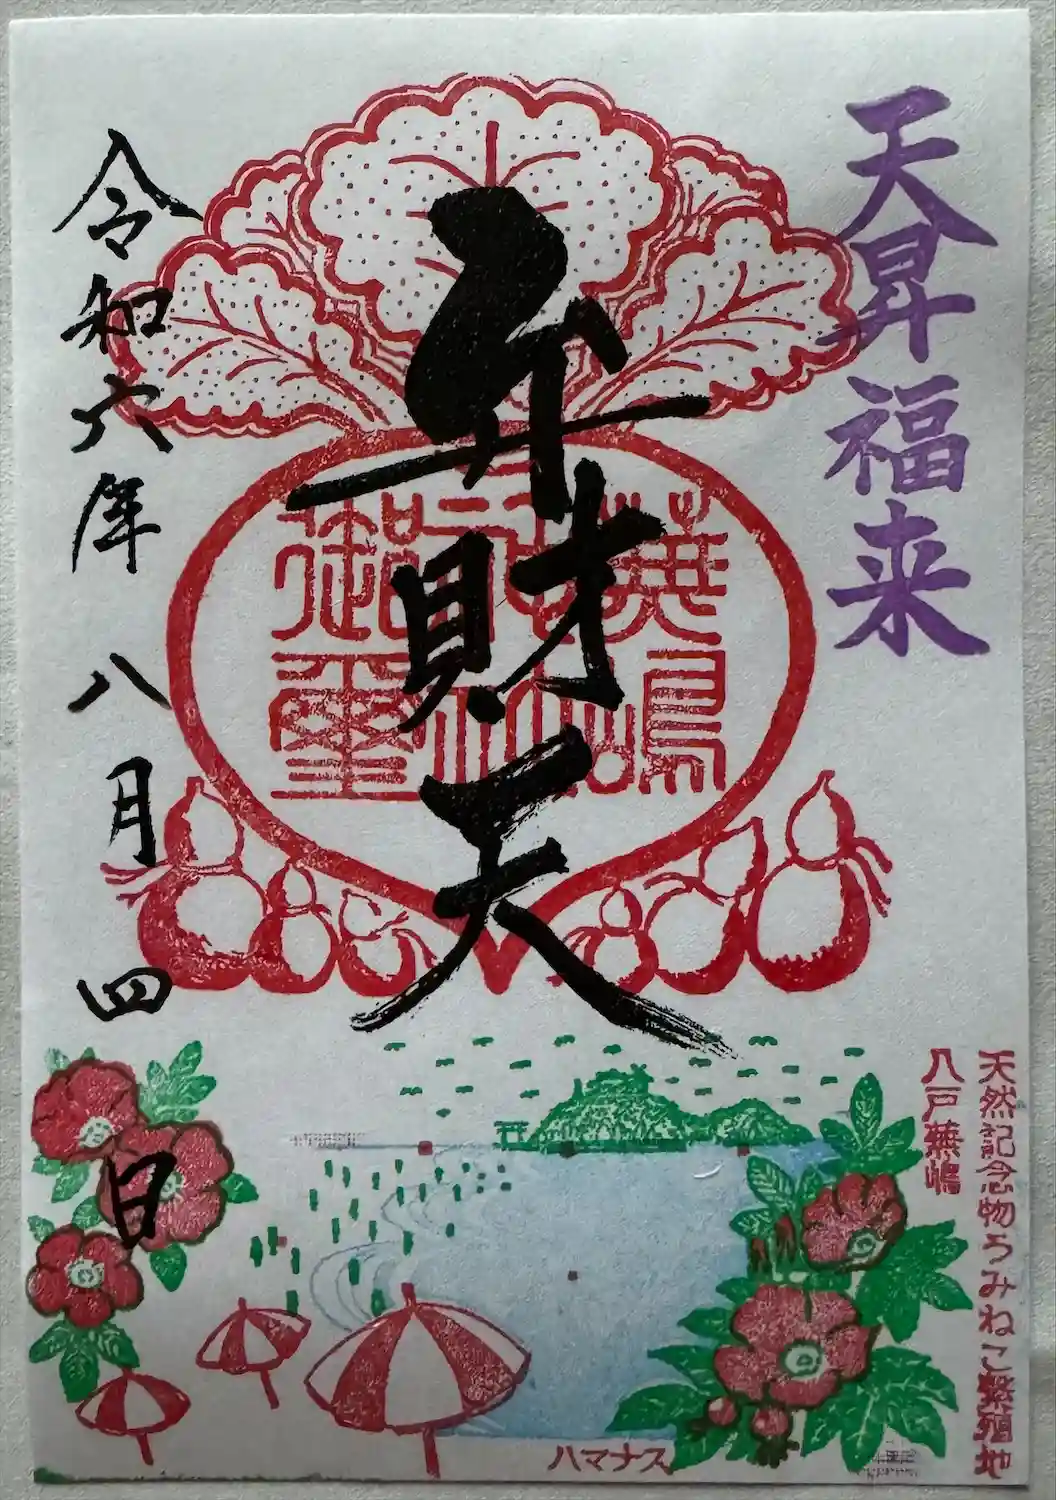 天昇福来
弁財天
蕪嶋神社御璽
令和六年 八月四日
天然記念物うみねこ繁殖地
八戸蕪嶋
ハマナス